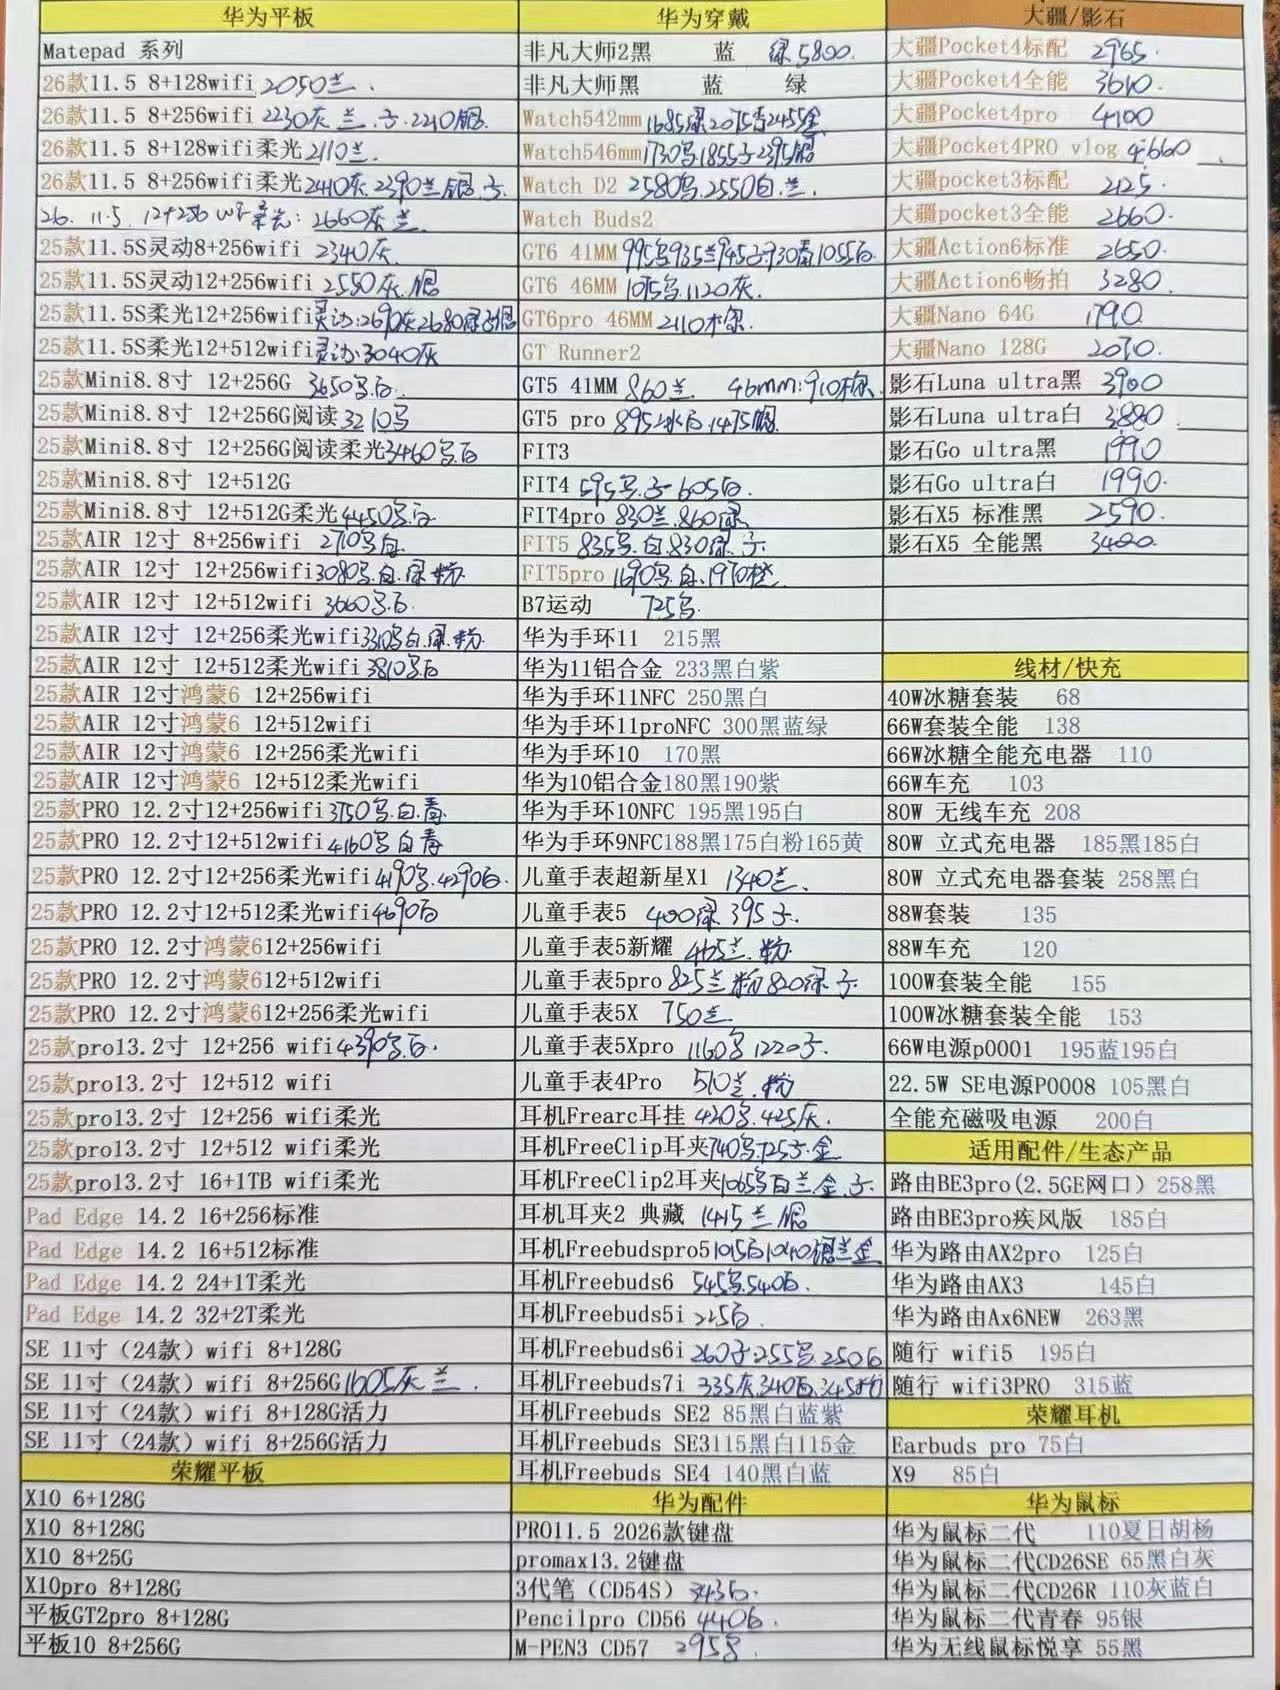 华为平板
Matepad 系列
26款11.5 8+128wifi 2050兰.
26款11.5 8+256wifi 2230灰 兰.子.2210银.
26款11.5 8+128wifi柔光2110兰.
26款11.5 8+256wifi柔光2410灰.2390兰银.子.
26. 11.5. 12+256 wifi柔光: 2660灰兰.
25款11.5S灵动8+256wifi 2340灰.
25款11.5S灵动12+256wifi 2550灰.银
25款11.5S柔光12+256wifi灵动:2690灰2680绿子银
25款11.5S柔光12+512wifi灵动:3040灰
25款Mini8.8寸 12+256G 3650写白.
25款Mini8.8寸 12+256G阅读3210写
25款Mini8.8寸 12+256G阅读柔光3460写白
25款Mini8.8寸 12+512G
25款Mini8.8寸 12+512G柔光4450写白
25款AIR 12寸 8+256wifi 2710写白
25款AIR 12寸 12+256wifi3080写.白.绿.粉.
25款AIR 12寸 12+512wifi 3660写.白.
25款AIR 12寸 12+256柔光wifi3310写白.绿.粉.
25款AIR 12寸 12+512柔光wifi3810写白
25款AIR 12寸鸿蒙6 12+256wifi
25款AIR 12寸鸿蒙6 12+512wifi
25款AIR 12寸鸿蒙6 12+256柔光wifi
25款AIR 12寸鸿蒙6 12+512柔光wifi
25款PRO 12.2寸12+256wifi3750写.白.青.
25款PRO 12.2寸12+512wifi4160写白青
25款PRO 12.2寸12+256柔光wifi4190写.4290白.
25款PRO 12.2寸12+512柔光wifi4690白
25款PRO 12.2寸鸿蒙612+256wifi
25款PRO 12.2寸鸿蒙612+512wifi
25款PRO 12.2寸鸿蒙612+256柔光wifi
25款pro13.2寸 12+256 wifi4390写.白.
25款pro13.2寸 12+512 wifi
25款pro13.2寸 12+256 wifi柔光
25款pro13.2寸 12+512 wifi柔光
25款pro13.2寸 16+1TB wifi柔光
Pad Edge 14.2 16+256标准
Pad Edge 14.2 16+512标准
Pad Edge 14.2 24+1T柔光
Pad Edge 14.2 32+2T柔光
SE 11寸（24款）wifi 8+128G
SE 11寸（24款）wifi 8+256G1605灰兰.
SE 11寸（24款）wifi 8+128G活力
SE 11寸（24款）wifi 8+256G活力
荣耀平板
X10 6+128G
X10 8+128G
X10 8+25G
X10pro 8+128G
平板GT2pro 8+128G
平板10 8+256G
华为穿戴
非凡大师2黑 蓝 绿5800.
非凡大师黑 蓝 绿
Watch542mm1685绿2075青2455金
Watch546mm1730写1855子2395银
Watch D2 2580写.2550白.兰.
Watch Buds2
GT6 41MM 995写935兰945子930青1055白.
GT6 46MM 1075写.1120灰.
GT6pro 46MM 2110棕.
GT Runner2
GT5 41MM 860兰. 46mm:910棕.
GT5 pro 895冰白.1475银.
FIT3
FIT4 595写.子 605白.
FIT4pro 830兰.860绿
FIT5 835写.白.830绿.子.
FIT5pro 1690写.白.1970橙.
B7运动 725写.
华为手环11 215黑
华为11铝合金 233黑白紫
华为手环11NFC 250黑白
华为手环11proNFC 300黑蓝绿
华为手环10 170黑
华为10铝合金180黑190紫
华为手环10NFC 195黑195白
华为手环9NFC188黑175白粉165黄
儿童手表超新星X1 1340兰.
儿童手表5 400绿.395子.
儿童手表5新耀 465兰.粉
儿童手表5pro825兰粉820绿子.
儿童手表5X 750兰.
儿童手表5Xpro 1160写1220子.
儿童手表4Pro 510兰.粉
耳机Frearc耳挂 420写.425灰.
耳机FreeClip耳夹740写.725子.金
耳机FreeClip2耳夹1065写白兰.金.子.
耳机耳夹2 典藏 1415兰银
耳机Freebudspro51015白1040银兰金
耳机Freebuds6 545写.540白.
耳机Freebuds5i 225白.
耳机Freebuds6i 260子.255写.250白
耳机Freebuds7i 335灰.340白.345粉
耳机Freebuds SE2 85黑白蓝紫
耳机Freebuds SE3115黑白115金
耳机Freebuds SE4 140黑白蓝
华为配件
PRO11.5 2026款键盘
promax13.2键盘
3代笔（CD54S）343白.
Pencilpro CD56 440白.
M-PEN3 CD57 295写
大疆/影石
大疆Pocket4标配 2965.
大疆Pocket4全能 3610.
大疆Pocket4pro 4100
大疆Pocket4PRO vlog 4660
大疆pocket3标配 2125.
大疆pocket3全能 2660.
大疆Action6标准 2650.
大疆Action6畅拍 3280.
大疆Nano 64G 1790.
大疆Nano 128G 2070.
影石Luna ultra黑 3900
影石Luna ultra白 3880
影石Go ultra黑 1990
影石Go ultra白 1990.
影石X5 标准黑 2590.
影石X5 全能黑 3400.
线材/快充
40W冰糖套装 68
66W套装全能 138
66W冰糖全能充电器 110
66W车充 103
80W 无线车充 208
80W 立式充电器 185黑185白
80W 立式充电器套装 258黑白
88W套装 135
88W车充 120
100W套装全能 155
100W冰糖套装全能 153
66W电源p0001 195蓝195白
22.5W SE电源P0008 105黑白
全能充磁吸电源 200白
适用配件/生态产品
路由BE3pro(2.5GE网口）258黑
路由BE3pro疾风版 185白
华为路由AX2pro 125白
华为路由AX3 145白
华为路由Ax6NEW 263黑
随行 wifi5 195白
随行 wifi3PRO 315蓝
荣耀耳机
Earbuds pro 75白
X9 85白
华为鼠标
华为鼠标二代 110夏日胡杨
华为鼠标二代CD26SE 65黑白灰
华为鼠标二代CD26R 110灰蓝白
华为鼠标二代青春 95银
华为无线鼠标悦享 55黑